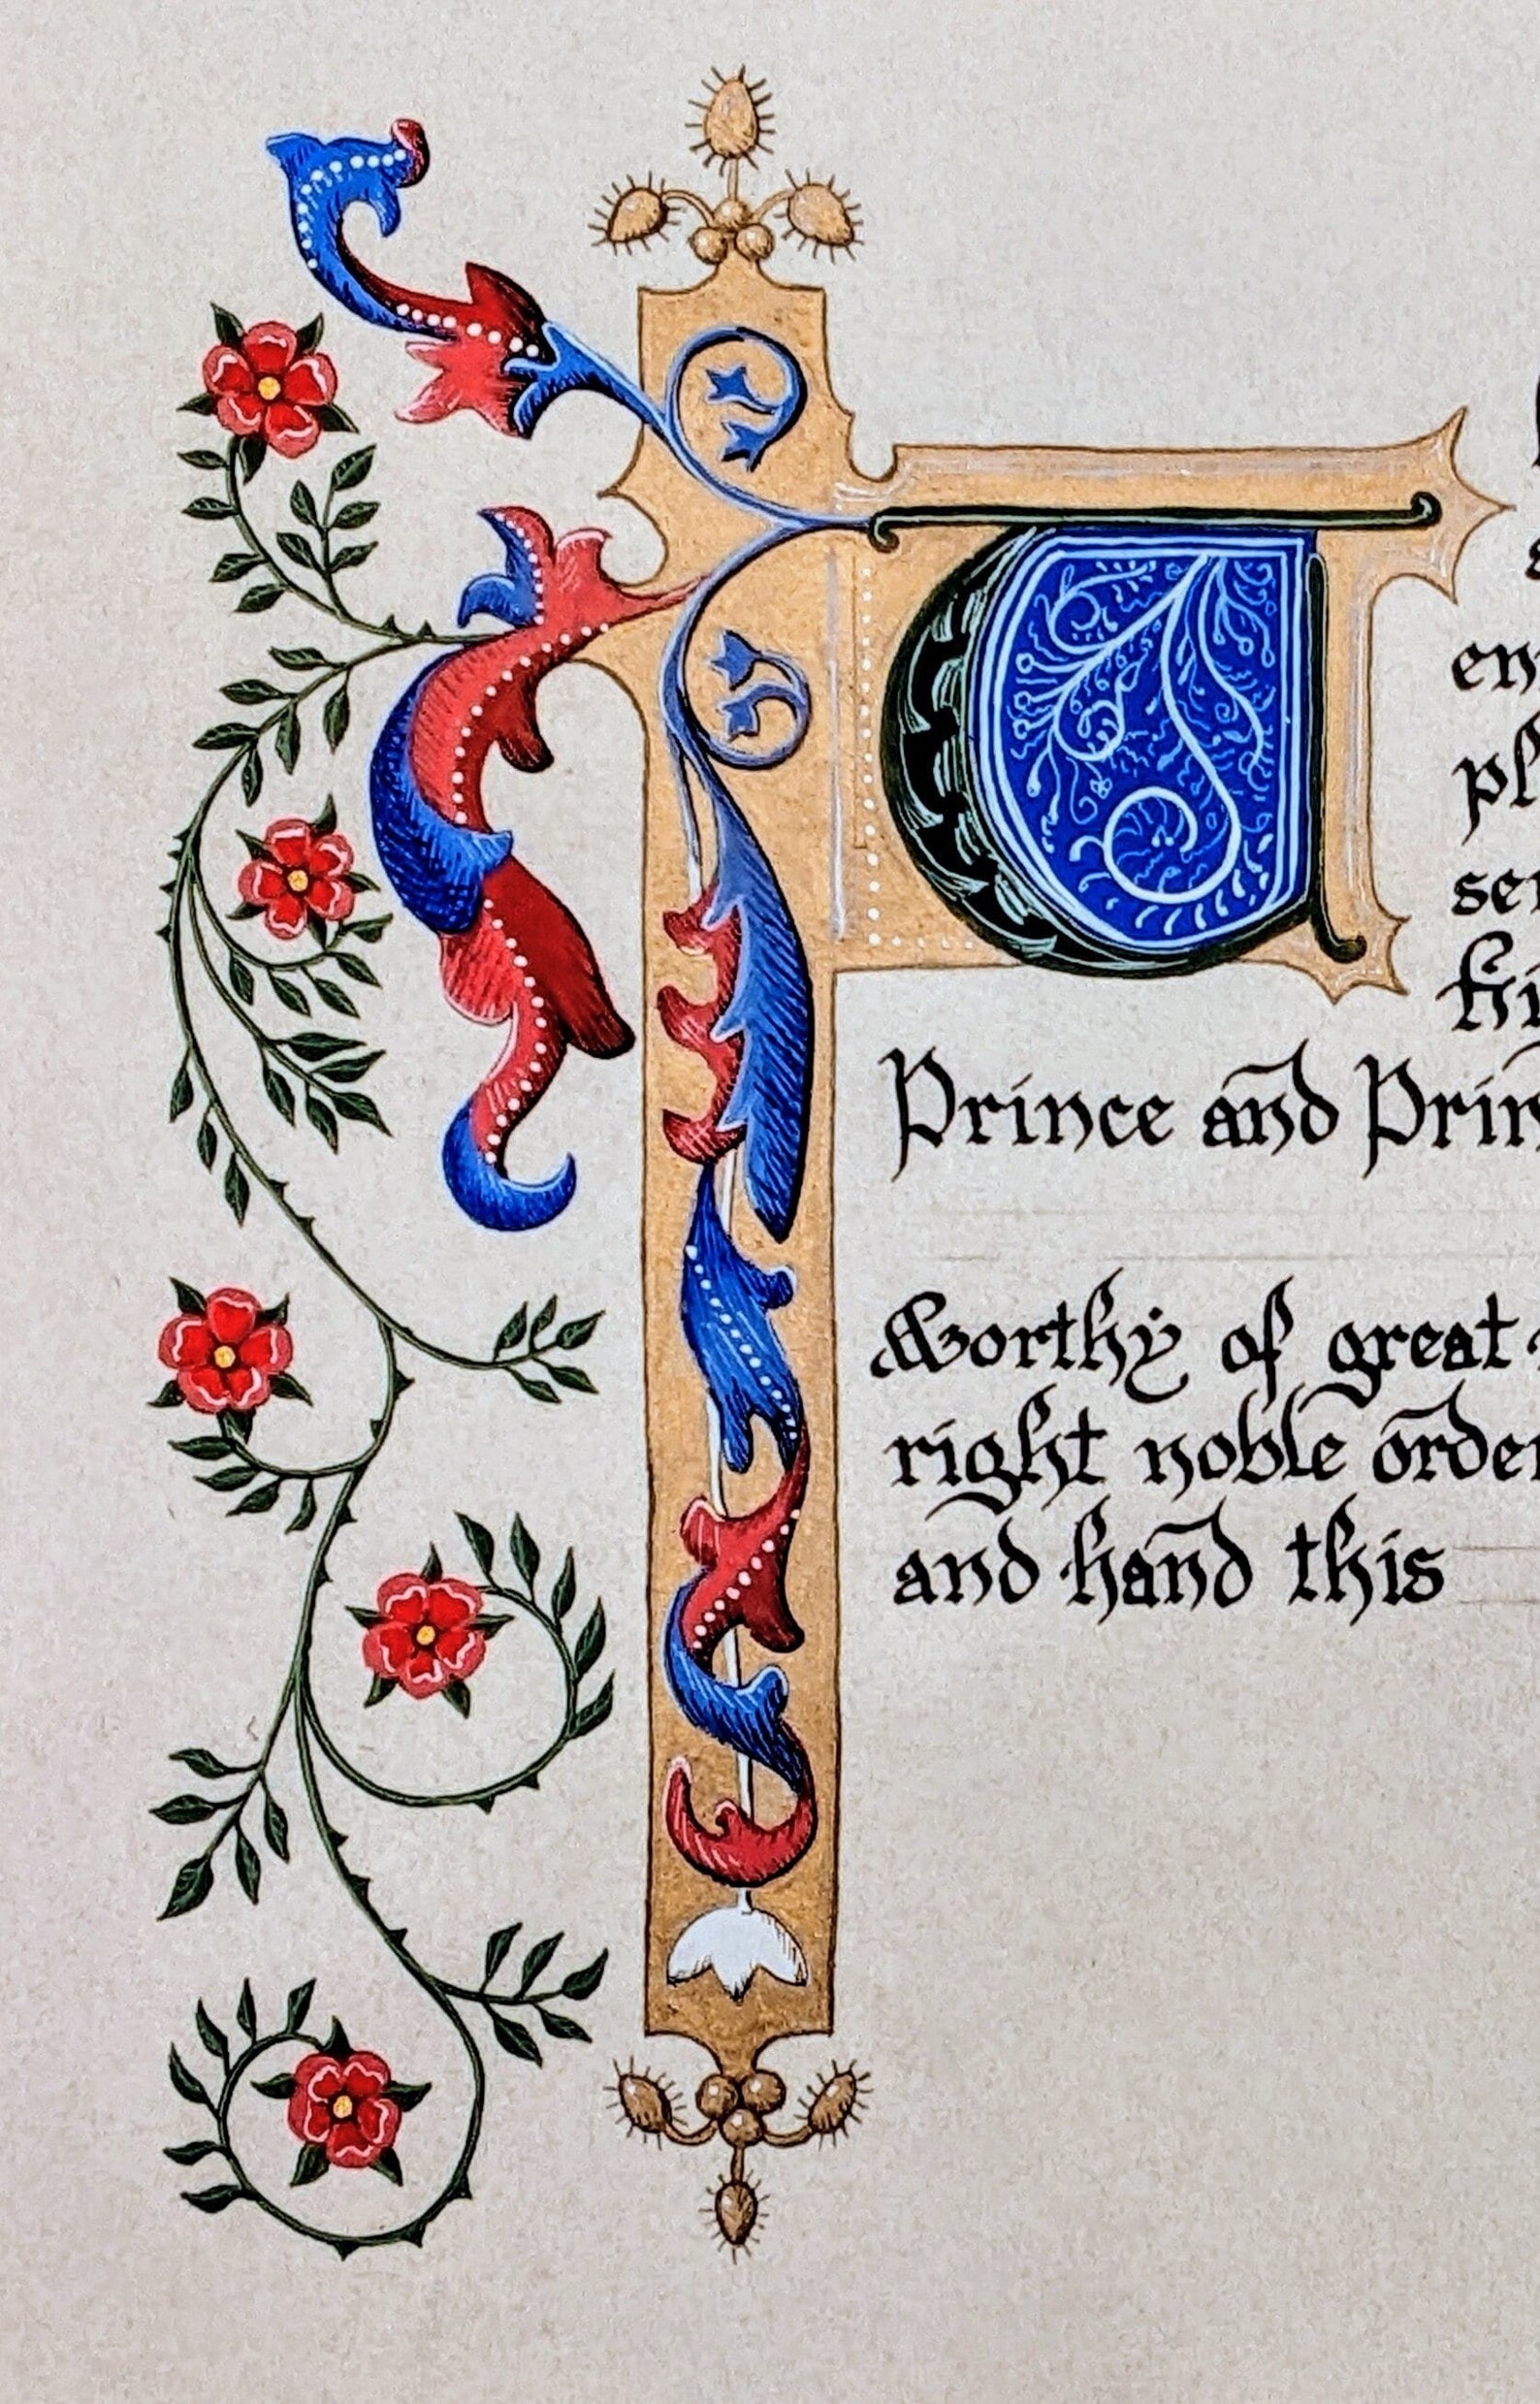 T
en
pl
ser
Prince and Prin
Worthy of great
right noble order
and hand this